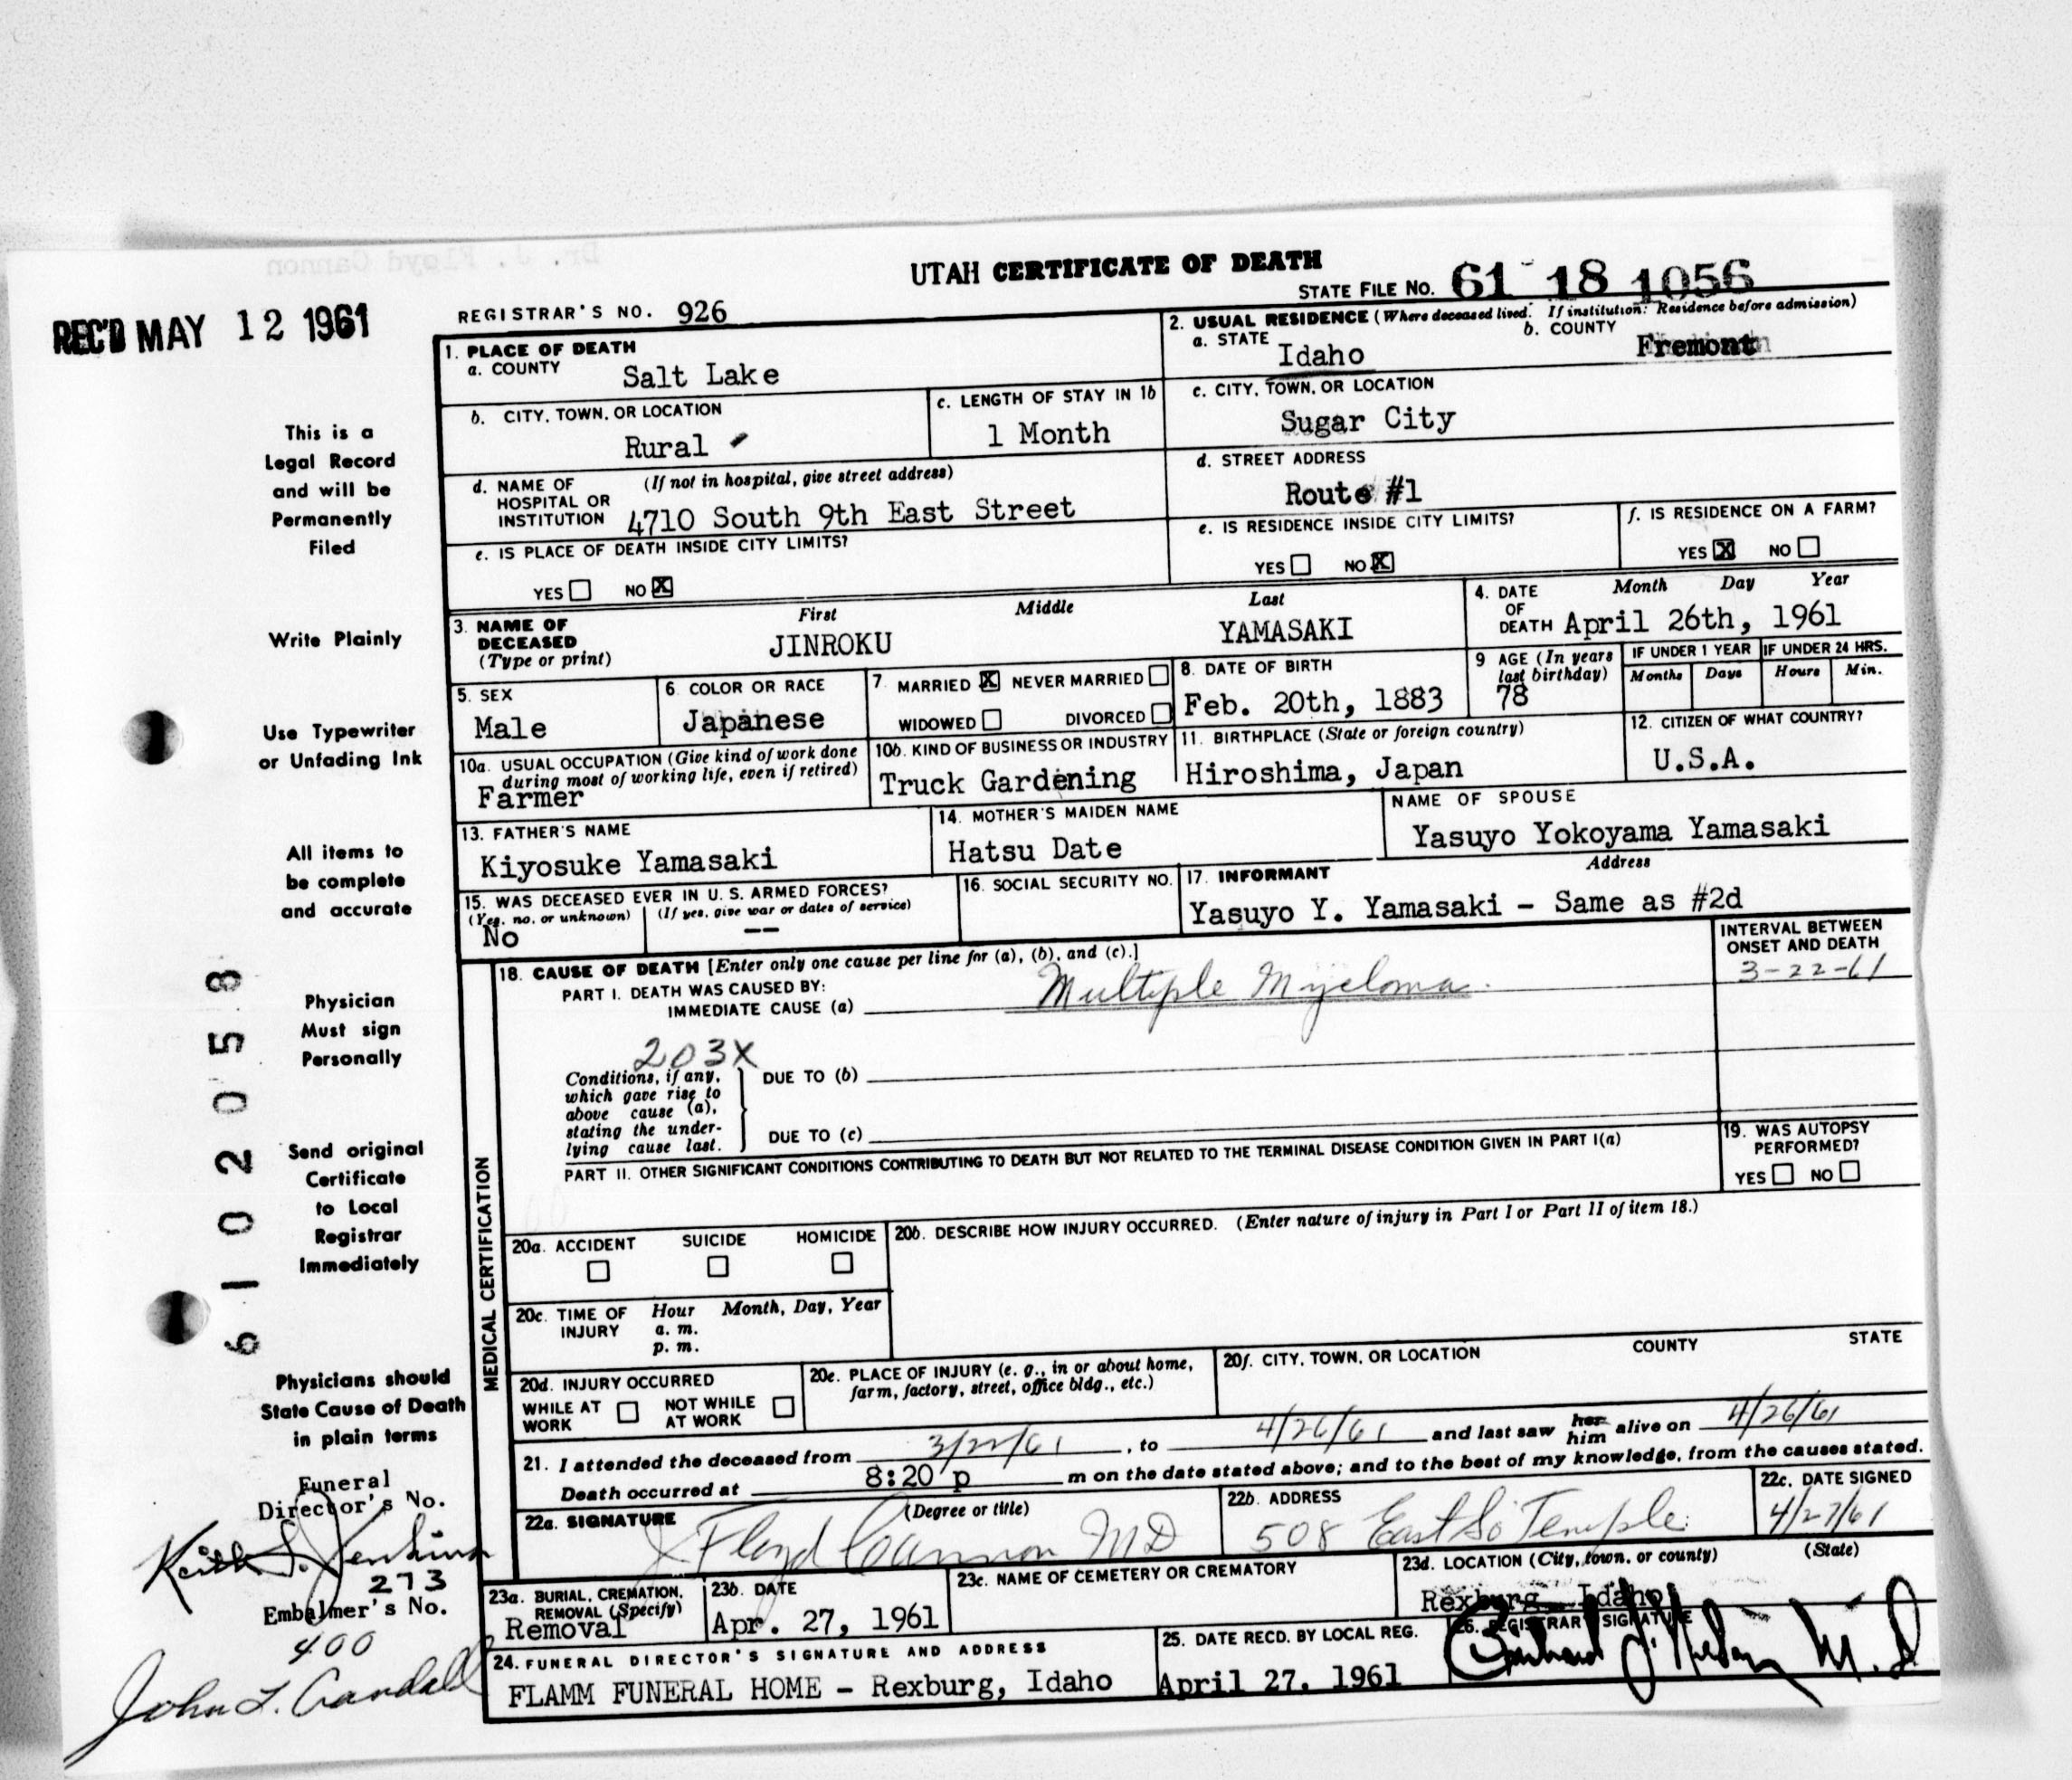 UTAH CERTIFICATE OF DEATH
STATE FILE NO. 61 18 1056
REC'D MAY 12 1961
REGISTRAR'S NO. 926
1. PLACE OF DEATH
a. COUNTY Salt Lake
2. USUAL RESIDENCE (Where deceased lived. If institution: Residence before admission)
a. STATE Idaho
b. COUNTY Fremont
b. CITY, TOWN, OR LOCATION Rural
c. LENGTH OF STAY IN 1b 1 Month
c. CITY, TOWN, OR LOCATION Sugar City
d. NAME OF HOSPITAL OR INSTITUTION (If not in hospital, give street address) 4710 South 9th East Street
d. STREET ADDRESS Route #1
e. IS PLACE OF DEATH INSIDE CITY LIMITS?
YES NO X
e. IS RESIDENCE INSIDE CITY LIMITS?
YES NO X
f. IS RESIDENCE ON A FARM?
YES X NO
3. NAME OF DECEASED (Type or print)
First Middle Last
JINROKU YAMASAKI
4. DATE OF DEATH Month Day Year
April 26th, 1961
5. SEX Male
6. COLOR OR RACE Japanese
7. MARRIED X NEVER MARRIED
WIDOWED DIVORCED
8. DATE OF BIRTH Feb. 20th, 1883
9 AGE (In years last birthday) 78
IF UNDER 1 YEAR Months Days
IF UNDER 24 HRS. Hours Min.
10a. USUAL OCCUPATION (Give kind of work done during most of working life, even if retired) Farmer
10b. KIND OF BUSINESS OR INDUSTRY Truck Gardening
11. BIRTHPLACE (State or foreign country) Hiroshima, Japan
12. CITIZEN OF WHAT COUNTRY? U.S.A.
13. FATHER'S NAME Kiyosuke Yamasaki
14. MOTHER'S MAIDEN NAME Hatsu Date
NAME OF SPOUSE Yasuyo Yokoyama Yamasaki
15. WAS DECEASED EVER IN U. S. ARMED FORCES?
(Yes, no, or unknown) (If yes, give war or dates of service)
No --
16. SOCIAL SECURITY NO.
17. INFORMANT Address
Yasuyo Y. Yamasaki - Same as #2d
MEDICAL CERTIFICATION
18. CAUSE OF DEATH [Enter only one cause per line for (a), (b), and (c).]
INTERVAL BETWEEN ONSET AND DEATH
PART I. DEATH WAS CAUSED BY:
IMMEDIATE CAUSE (a) Multiple Myeloma. 3-22-61
203X
Conditions, if any, which gave rise to above cause (a), stating the underlying cause last.
DUE TO (b)
DUE TO (c)
PART II. OTHER SIGNIFICANT CONDITIONS CONTRIBUTING TO DEATH BUT NOT RELATED TO THE TERMINAL DISEASE CONDITION GIVEN IN PART I(a)
19. WAS AUTOPSY PERFORMED?
YES NO
20a. ACCIDENT SUICIDE HOMICIDE
20b. DESCRIBE HOW INJURY OCCURRED. (Enter nature of injury in Part I or Part II of item 18.)
20c. TIME OF INJURY Hour Month, Day, Year
a. m.
p. m.
20d. INJURY OCCURRED
WHILE AT WORK NOT WHILE AT WORK
20e. PLACE OF INJURY (e. g., in or about home, farm, factory, street, office bldg., etc.)
20f. CITY, TOWN, OR LOCATION COUNTY STATE
21. I attended the deceased from 3/22/61, to 4/26/61 and last saw her him alive on 4/26/61
Death occurred at 8:20 p m on the date stated above; and to the best of my knowledge, from the causes stated.
22a. SIGNATURE (Degree or title)
J Floyd Cannon MD
22b. ADDRESS
508 East So Temple
22c. DATE SIGNED
4/27/61
23a. BURIAL, CREMATION, REMOVAL (Specify) Removal
23b. DATE Apr. 27, 1961
23c. NAME OF CEMETERY OR CREMATORY
23d. LOCATION (City, town, or county) (State)
Rexburg, Idaho
24. FUNERAL DIRECTOR'S SIGNATURE AND ADDRESS
FLAMM FUNERAL HOME - Rexburg, Idaho
25. DATE RECD. BY LOCAL REG.
April 27, 1961
26. REGISTRAR'S SIGNATURE
M.D
This is a
Legal Record
and will be
Permanently
Filed
Write Plainly
Use Typewriter
or Unfading Ink
All items to
be complete
and accurate
Physician
Must sign
Personally
Send original
Certificate
to Local
Registrar
Immediately
Physicians should
State Cause of Death
in plain terms
Funeral
Director's No.
Keith S. Jenkins
273
Embalmer's No.
400
John L. Crandall
61020583
Dr. J. Floyd Cannon